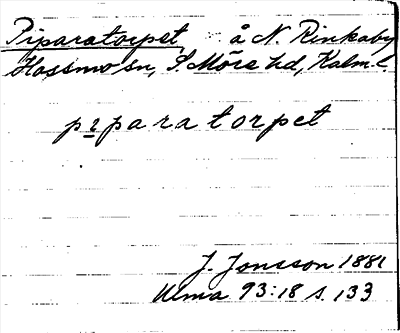 Piparatorpet å N. Rinkaby
Hossmo sn, S. Möre hd, Kalm. l.
pıparatorpet
J. Jonsson 1881
Ulma 93:18 s. 133